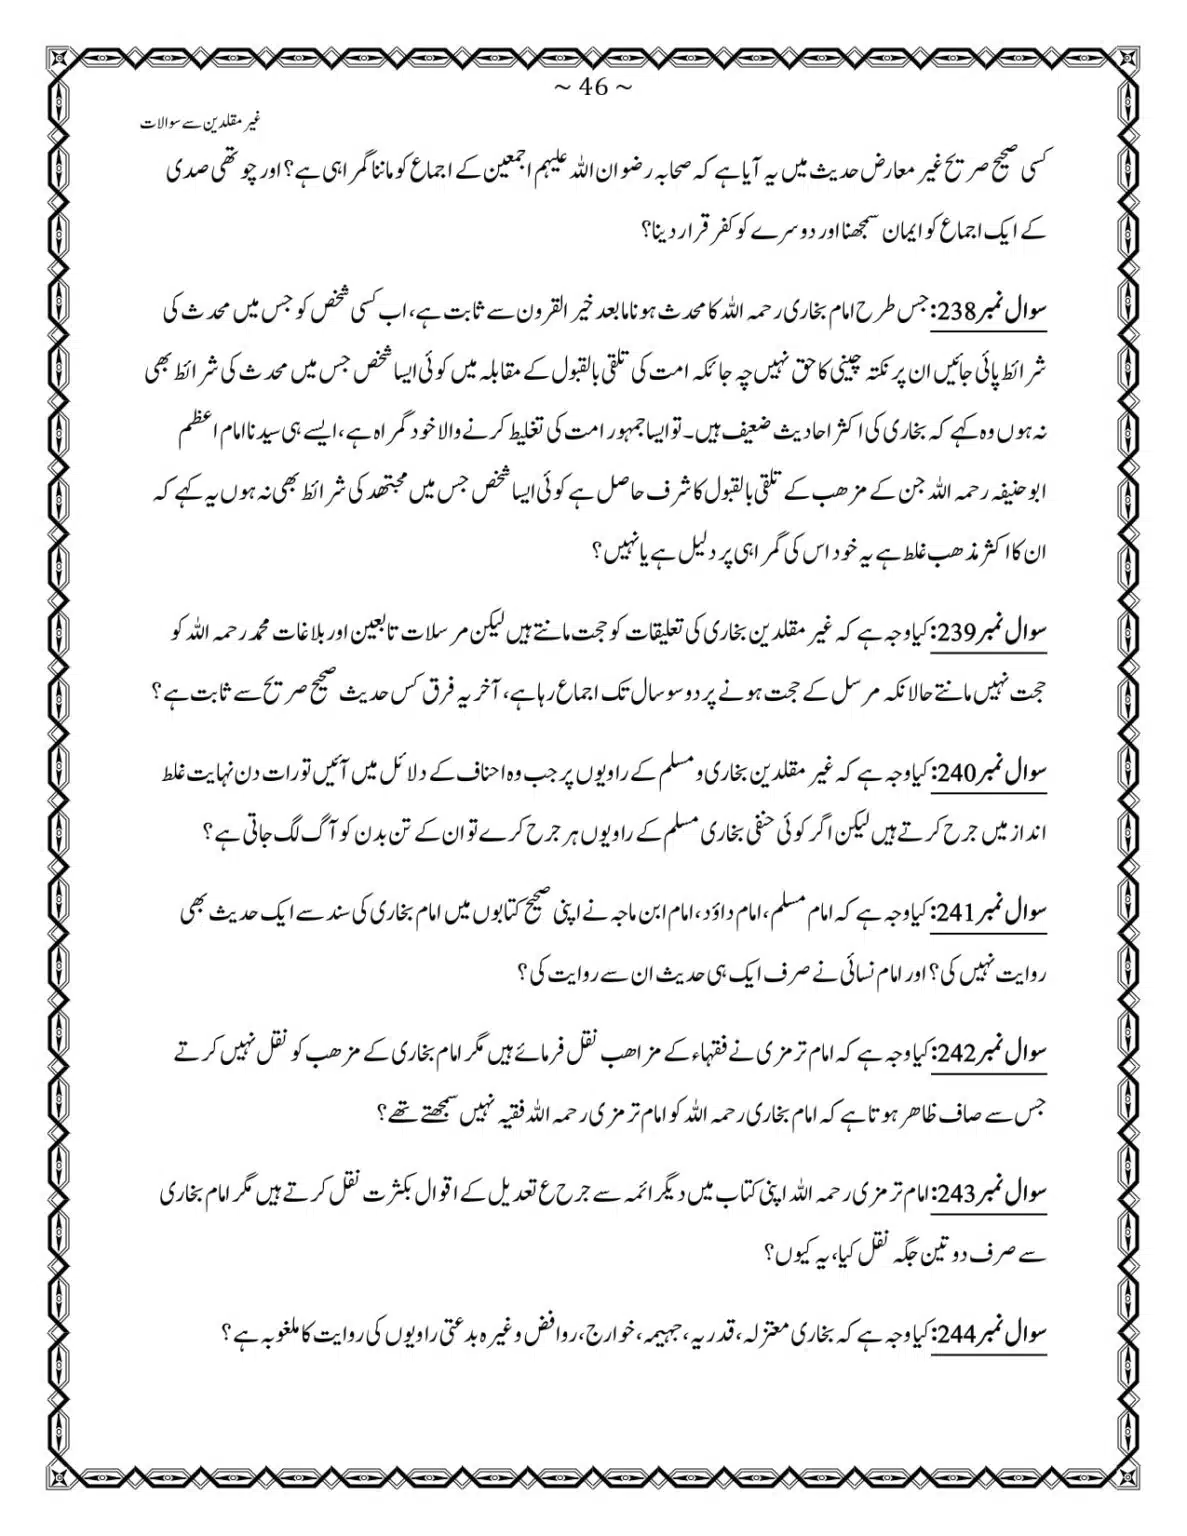 ~ 46 ~
غیر مقلدین سے سوالات
کسی صحیح صریح غیر معارض حدیث میں یہ آیا ہے کہ صحابہ رضوان اللہ علیہم اجمعین کے اجماع کو ماننا گمراہی ہے؟ اور چوتھی صدی
کے ایک اجماع کو ایمان سمجھنا اور دوسرے کو کفر قرار دینا؟
سوال نمبر 238: جس طرح امام بخاری رحمہ اللہ کا محدث ہونا ما بعد خیر القرون سے ثابت ہے، اب کسی شخص کو جس میں محدث کی
شرائط پائی جائیں ان پر نکتہ چینی کا حق نہیں چہ جائکہ امت کی تلقی بالقبول کے مقابلہ میں کوئی ایسا شخص جس میں محدث کی شرائط بھی
نہ ہوں وہ کہے کہ بخاری کی اکثر احادیث ضعیف ہیں۔ تو ایسا جمہور امت کی تغلیط کرنے والا خود گمراہ ہے، ایسے ہی سیدنا امام اعظم
ابو حنیفہ رحمہ اللہ جن کے مزھب کے تلقی بالقبول کا شرف حاصل ہے کوئی ایسا شخص جس میں مجتھد کی شرائط بھی نہ ہوں یہ کہے کہ
ان کا اکثر مذھب غلط ہے یہ خود اس کی گمراہی پر دلیل ہے یا نہیں؟
سوال نمبر 239: کیا وجہ ہے کہ غیر مقلدین بخاری کی تعلیقات کو حجت مانتے ہیں لیکن مرسلات تابعین اور بلاغات محمد رحمہ اللہ کو
حجت نہیں مانتے حالانکہ مرسل کے حجت ہونے پر دو سو سال تک اجماع رہا ہے، آخر یہ فرق کس حدیث صحیح صریح سے ثابت ہے؟
سوال نمبر 240: کیا وجہ ہے کہ غیر مقلدین بخاری و مسلم کے راویوں پر جب وہ احناف کے دلائل میں آئیں تو رات دن نہایت غلط
انداز میں جرح کرتے ہیں لیکن اگر کوئی حنفی بخاری مسلم کے راویوں ہر جرح کرے تو ان کے تن بدن کو آگ لگ جاتی ہے؟
سوال نمبر 241: کیا وجہ ہے کہ امام مسلم، امام داؤد، امام ابن ماجہ نے اپنی صحیح کتابوں میں امام بخاری کی سند سے ایک حدیث بھی
روایت نہیں کی؟ اور امام نسائی نے صرف ایک ہی حدیث ان سے روایت کی؟
سوال نمبر 242: کیا وجہ ہے کہ امام ترمزی نے فقہاء کے مزاھب نقل فرمائے ہیں مگر امام بخاری کے مزھب کو نقل نہیں کرتے
جس سے صاف ظاھر ہوتا ہے کہ امام بخاری رحمہ اللہ کو امام ترمزی رحمہ اللہ فقیہ نہیں سمجھتے تھے؟
سوال نمبر 243: امام ترمزی رحمہ اللہ اپنی کتاب میں دیگر ائمہ سے جرح ع تعدیل کے اقوال بکثرت نقل کرتے ہیں مگر امام بخاری
سے صرف دو تین جگہ نقل کیا، یہ کیوں؟
سوال نمبر 244: کیا وجہ ہے کہ بخاری معتزلہ، قدریہ، جہیمہ، خوارج، روافض وغیرہ بدعتی راویوں کی روایت کا ملغوبہ ہے؟